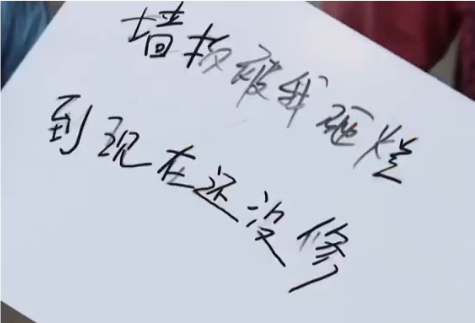 墙板被我砸烂
到现在还没修